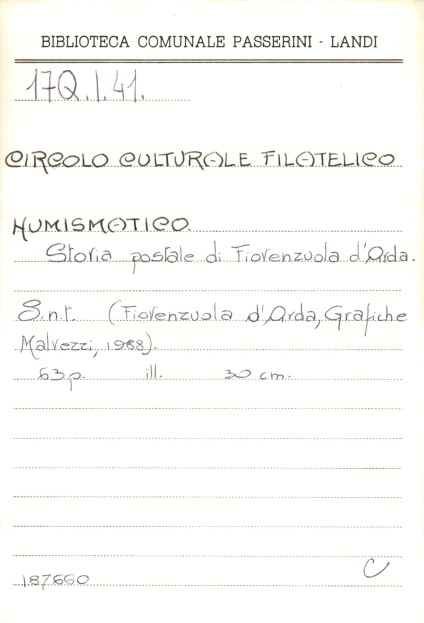 BIBLIOTECA COMUNALE PASSERINI - LANDI
17Q.I.41.
CIRCOLO CULTURALE FILATELICO
NUMISMATICO.
Storia postale di Fiorenzuola d'Arda.
S.n.t. (Fiorenzuola d'Arda, Grafiche
Malvezzi, 1988).
63 p. ill. 30 cm.
C
187660